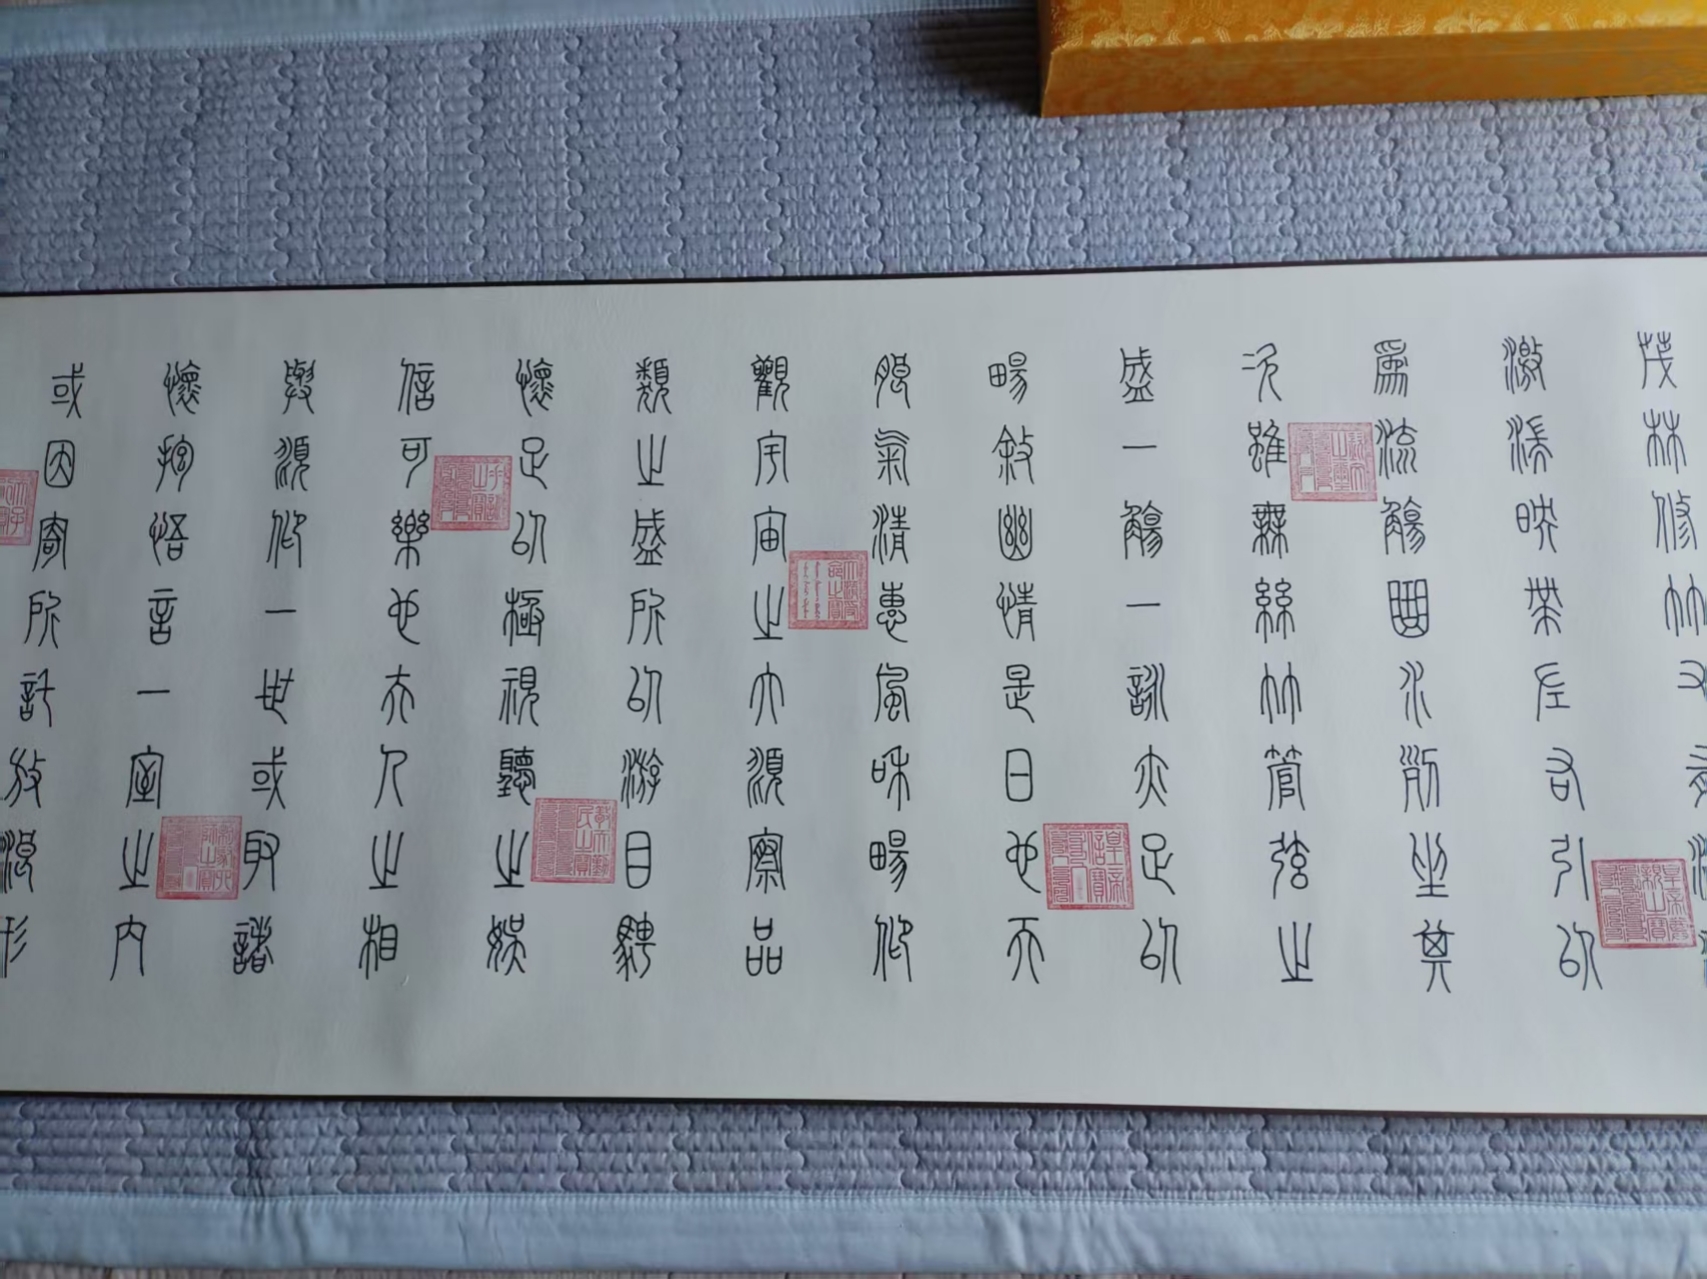 茂林修竹又有清
激湍映帶左右引以
爲流觴曲水列坐其
次雖無絲竹管弦之
盛一觴一詠亦足以
暢敘幽情是日也天
朗氣清惠風和暢仰
觀宇宙之大俯察品
類之盛所以游目騁
懷足以極視聽之娛
信可樂也夫人之相
與俯仰一世或取諸
懷抱悟言一室之內
或因寄所託放浪形
皇帝信寶